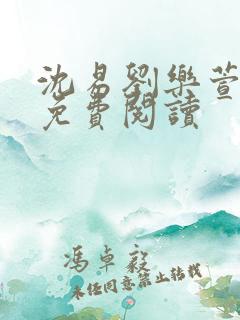 沈易劉樂萱
免費閱讀
馮卓毅
未任同意禁止轉載